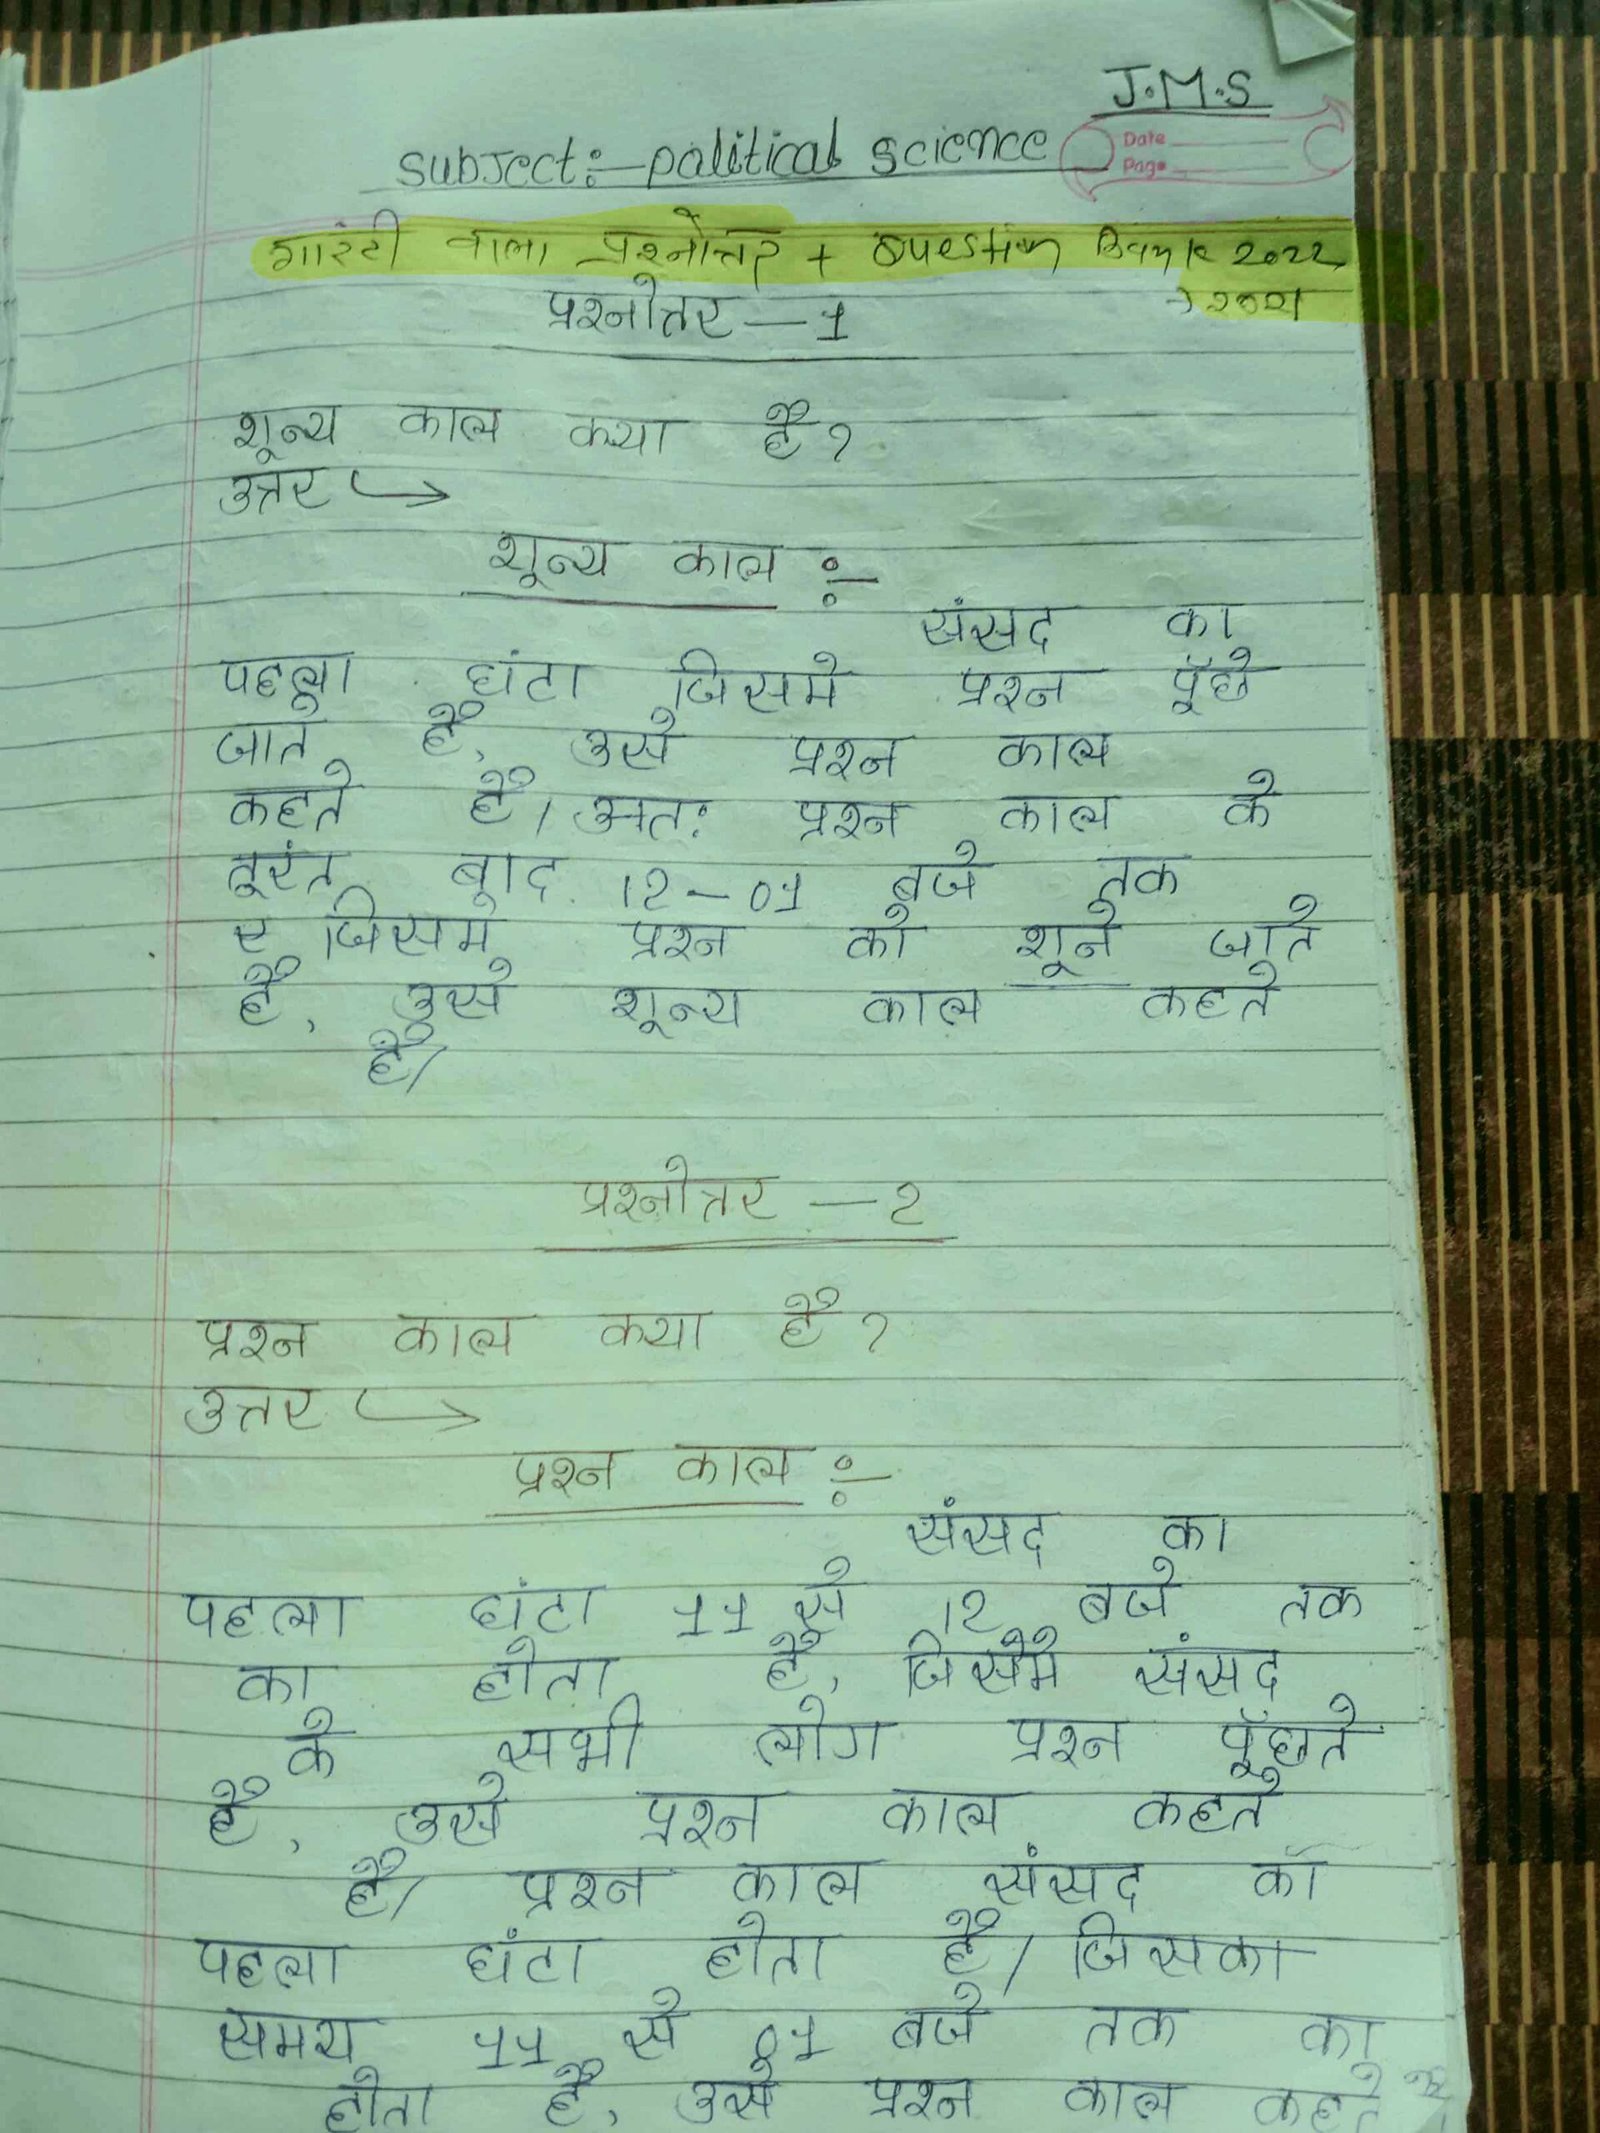 J.M.S
Date
Page
Subject:- palitical science
गारंटी वाला प्रश्नोत्तर + Question Bank 2022
→ 2021
प्रश्नोत्तर — 1
शून्य काल क्या है?
उत्तर ↪
शून्य काल :-
संसद का
पहला घंटा जिसमे प्रश्न पूँछे
जाते हैं, उसे प्रश्न काल
कहते हैं। अतः प्रश्न काल के
तूरंत बाद 12-01 बजे तक
जिसमे प्रश्न को शूने जाते
हैं, उसे शून्य काल कहते
हैं।
प्रश्नोत्तर — 2
प्रश्न काल क्या है?
उत्तर ↪
प्रश्न काल :-
संसद का
पहला घंटा 11 से 12 बजे तक
का होता है, जिसमे संसद
के सभी लोग प्रश्न पूँछते
हैं, उसे प्रश्न काल कहते
हैं। प्रश्न काल संसद का
पहला घंटा होता है। जिसका
समय 11 से 01 बजे तक का
होता है, उसे प्रश्न काल कहते हैं